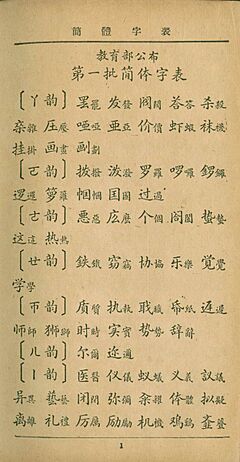 簡體字表
教育部公布
第一批简体字表
〔ㄚ韵〕 罢罷 发發 阀閥 荅答 杀殺
杂雜 压壓 哑啞 亚亞 价價 虾蝦 袜襪
挂掛 画畫 劃
〔ㄛ韵〕 拨撥 泼潑 罗羅 啰囉 锣鑼
逻邏 箩籮 帼幗 国國 过過
〔ㄜ韵〕 恶惡 庅麼 个個 阁閣 蛰蟄
这這 热熱
〔ㄝ韵〕 鉄鐵 窃竊 协協 乐樂 覚覺
学學
〔ㄭ韵〕 质質 执執 职職 帋紙 迟遲
师師 狮獅 时時 实實 势勢 辞辭
〔ㄦ韵〕 尔爾 迩邇
〔ㄧ韵〕 医醫 仪儀 蚁蟻 义義 议議
异異 艺藝 闭 弥彌 体體 拟擬
离離 礼禮 厉厲 励勵 机機 鸡鷄
1